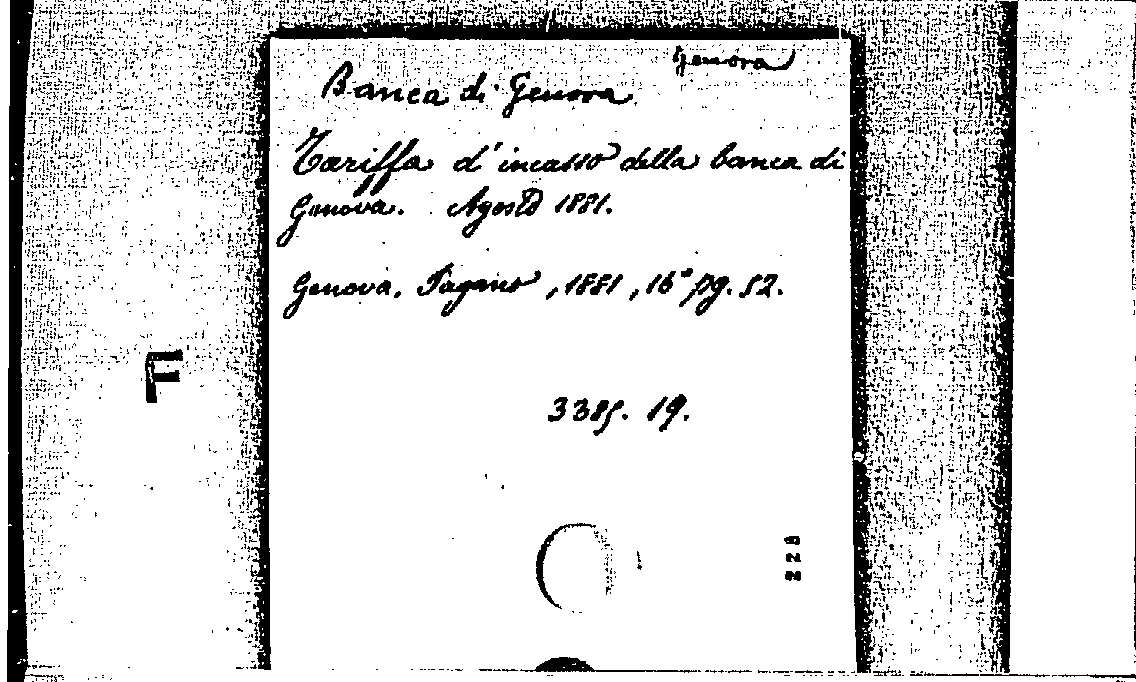 Genova
Banca di Genova
Tariffa d'incasso della banca di
Genova. Agosto 1881.
Genova, Pagano, 1881, 16° pg. 52.
3385. 19.
F